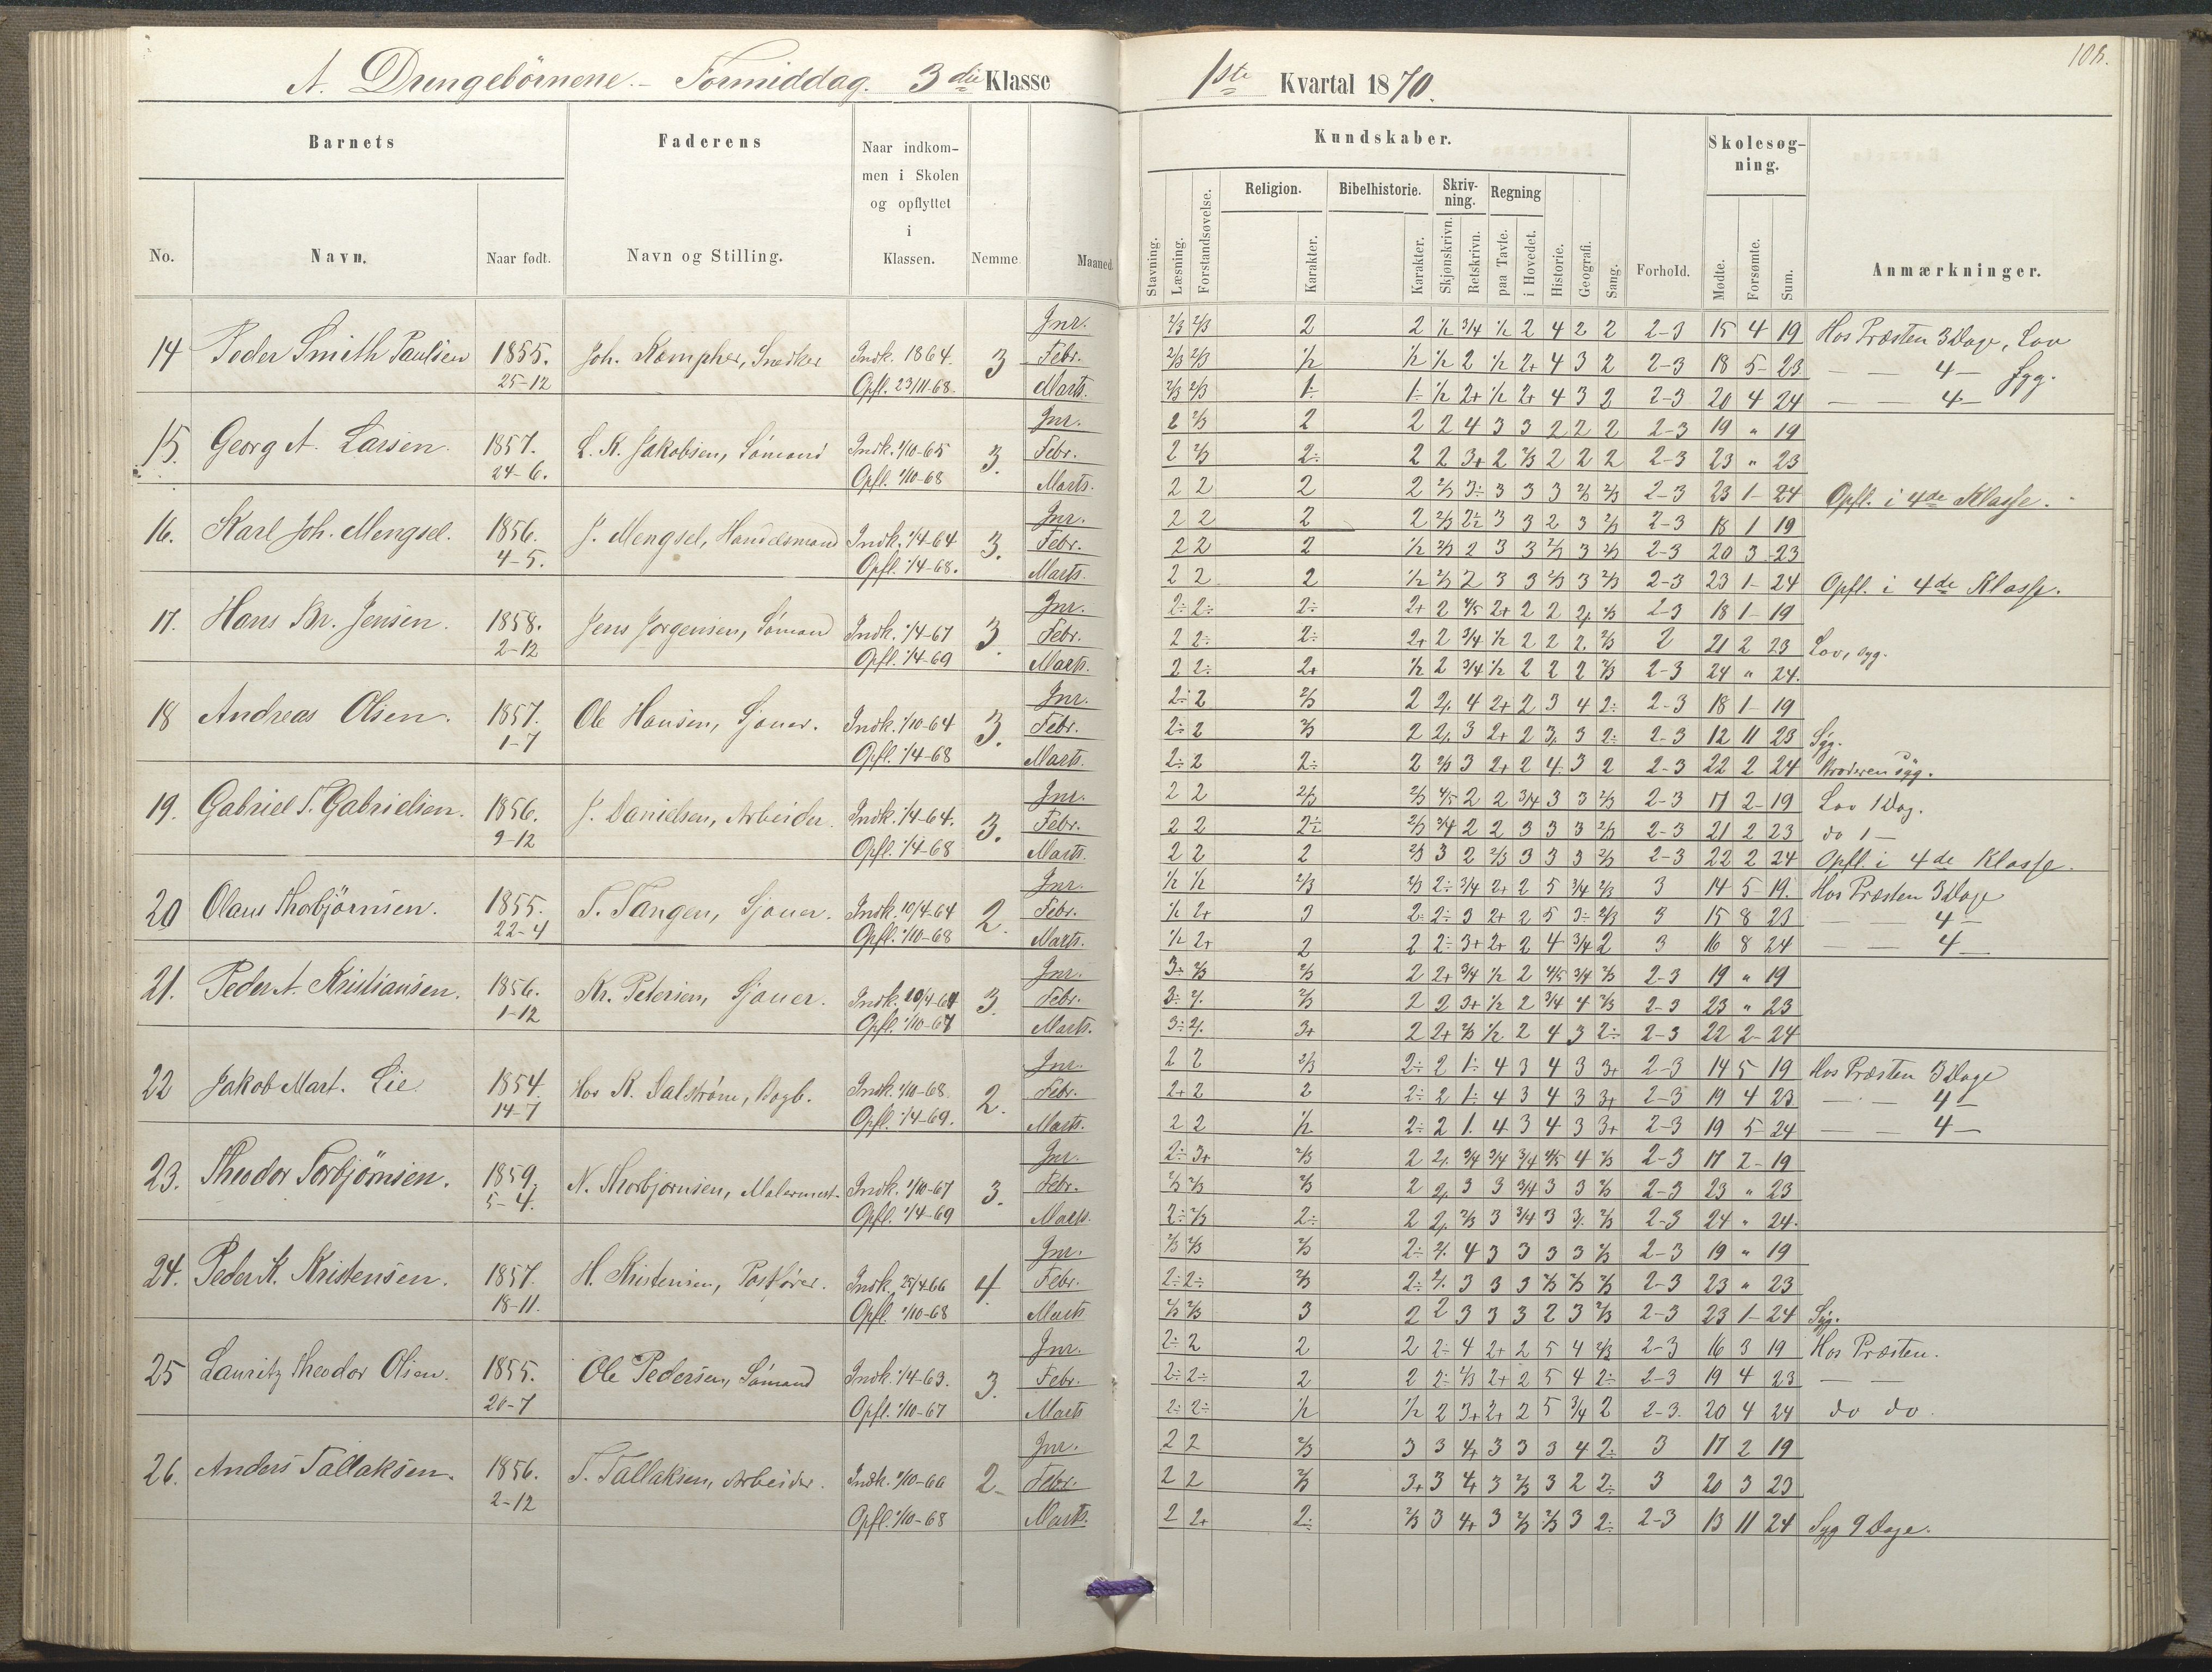 A. Drengebörnene. - Formiddag. 3die Klasse
1ste Kvartal 1870.
Barnets
Faderens
Naar indkom-
men i Skolen
og opflyttet
i
Klassen.
No.
Navn.
Naar født.
Navn og Stilling.
Nemme.
Maaned.
Kundskaber.
Skolesøg-
ning.
Religion.
Bibelhistorie.
Skriv-
ning.
Regning
Stavning.
Læsning.
Forstandsøvelse.
Karakter.
Karakter.
Skjønskrivn.
Retskrivn.
paa Tavle.
i Hovedet.
Historie.
Geografi.
Sang.
Forhold.
Mødte.
Forsømte.
Sum.
Anmærkninger.
14 Peder Smith Paulsen 1855. 25-12 Joh. Kempher, Snedker Indk. 1864. Opfl. 23/11-68. 3
Jnr. 2/3 2/3 2 2 1/2 3/4 1/2 2 4 2 2 2-3 15 4 19 Hos Præsten 3 Dage, Lov
Febr. 2/3 2/3 1/2 1/2 1/2 2 1/2 2+ 4 3 2 2-3 18 5 23 — — 4 — Syg.
Marts. 2/3 2/3 1÷ 1÷ 1/2 2+ 1/2 2+ 4 3 2 2-3 20 4 24 — — 4 —
15. Georg A. Larsen. 1857. 24-6. L. K. Jakobsen, Sömand Indk. 1/10-65 Opfl. 1/10-68 3.
Jnr. 2 2/3 2 2 2 4 3 3 2 2 2 2-3 19 " 19
Febr. 2 2/3 2÷ 2 2 3+ 2 2/3 2 2 2 2-3 23 " 23
Marts. 2 2 2 2 2/3 3÷ 3 3 3 2/3 2/3 2-3 23 1 24 Opfl. i 4de Klasse.
16. Karl Joh. Mengsel. 1856. 4-5. J. Mengsel, Handelsmand Indk. 1/4-64 Opfl. 1/4-68. 3.
Jnr. 2 2 2 2 2/3 2÷ 3 3 2 3 2/3 2-3 18 1 19
Febr. 2 2 2 1/2 2/3 2 3 3 2/3 3 2/3 2-3 20 3 23
Marts. 2 2 2 1/2 2/3 2 3 3 2/3 3 2/3 2-3 23 1 24 Opfl. i 4de Klasse.
17. Hans Br. Jensen. 1858. 2-12 Jens Jorgensen, Sömand Indk. 1/4-67 Opfl. 1/4-69 3.
Jnr. 2÷ 2÷ 2÷ 2+ 2 4/5 2+ 2 2 2-3 18 1 19
Febr. 2 2÷ 2÷ 2+ 2 3/4 1/2 2 2 2 2/3 2 21 2 23 Lov, syg.
Marts. 2 2÷ 2+ 1/2 2 3/4 1/2 2 2 2 2/3 2-3 24 " 24.
18 Andreas Olsen. 1857. 1-7 Ole Hansen, Sjouer. Indk. 1/10-64 Opfl. 1/4-68 3.
Jnr. 2÷ 2 2/3 2 2 4 2+ 2 3 4 2÷ 2-3 18 1 19
Febr. 2÷ 2 2/3 2 2 3 2+ 2 3 3 2÷ 2-3 12 11 23 Syg.
Marts. 2÷ 2 2÷ 2 2/3 3 2+ 2 4 3 2 2-3 22 2 24 Broderen syg.
19. Gabriel T. Gabrielsen. 1856. 9-12 J. Danielsen, Arbeider. Indk. 1/4-64. Opfl. 1/4-68 3.
Jnr. 2 2 2/3 2/3 4/5 2 2 3/4 3 3 2/3 2-3 17 2 19 Lov 1 Dag.
Febr. 2 2 2÷ 2/3 3/4 2 2 3 3 3 2/3 2-3 21 2 23 do 1 —
Marts. 2 2 2 2/3 3 2 2/3 3 3 3 2/3 2-3 22 2 24 Opfl. i 4de Klasse.
20 Olaus Thorbjörnsen. 1855. 22-4 T. Tangen, Sjouer. Indk. 10/4-64 Opfl. 1/10-68 2.
Jnr. 1/2 1/2 2/3 2/3 2÷ 3/4 2+ 2 5 3/4 2/3 3 14 5 19. Hos Præsten 3 Dage
Febr. 1/2 2+ 3 2÷ 2÷ 3 2+ 2 5 3÷ 2/3 3 15 8 23 — — 4 —
Marts. 1/2 2+ 2 2 2÷ 3+ 2+ 2 4 3/4 2 3 16 8 24 — — 4 —
21. Peder A. Kristiansen. 1856. 1-12 Kr. Petersen, Sjouer. Indk. 10/4-64 Opfl. 1/10-67 3.
Jnr. 3+ 2/3 2/3 2 2+ 3/4 1/2 2 4/5 3/4 2/3 2-3 19 " 19
Febr. 3÷ 2/3 2 2 3+ 1/2 2 3/4 4 2/3 2-3 23 " 23
Marts. 3÷ 3+ 2 2+ 2/3 1/2 2 4 3 2÷ 2-3 22 2 24
22 Jakob Mart. Lie 1854. 14-7 Hos K. Salström, Bogb. Indk. 1/10-68. Opfl. 1/4-69. 2.
Jnr. 2 2 2/3 2÷ 2 1÷ 4 3 4 3 3+ 2-3 14 5 19 Hos Præsten 3 Dage
Febr. 2+ 2 2 2÷ 2 1÷ 4 3 4 3 3+ 2-3 19 4 23 — — 4 —
Marts. 2 2 1/2 2÷ 2 1. 4 3 4 3 3+ 2-3 19 5 24 — — 4 —
23. Theodor Torbjörnsen. 1859. 5-4. N. Thorbjornsen, Malermest. Indk. 1/10-67 Opfl. 1/4-69 3.
Jnr. 2÷ 3+ 2/3 2 2 3/4 3/4 3/4 4/5 4 2/3 2-3 17 2 19
Febr. 2/3 2/3 2/3 2 2 3 3 3/4 3 3 2/3 2-3 23 " 23
Marts. 2÷ 2/3 2÷ 2 2 2/3 3 3/4 3 3 2/3 2-3 24 " 24.
24. Peder K. Kristensen. 1857. 18-11. H. Kristensen, Postförer. Indk. 25/4-66 Opfl. 1/10-68 4.
Jnr. 2/3 2/3 2/3 2÷ 4 3 3 3 3 2/3 2-3 19 " 19
Febr. 2÷ 2÷ 2/3 2÷ 3 3 3 2/3 2/3 2/3 2-3 23 " 23
Marts 2/3 2/3 3 2 2 3 3 3 2 3 2/3 2-3 23 1 24 Syg.
25 Lauritz Theodor Olsen. 1855. 20-7 Ole Pedersen, Sömand Indk. 1/4-63. Opfl. 1/10-67 3.
Jnr. 2÷ 2 2 2 2÷ 4 2+ 2 5 4 2/3 2-3 16 3 19 Hos Præsten.
Febr. 2÷ 2÷ 2 2 2÷ 4/3 2+ 2 5 4 2÷ 2-3 19 4 23 — —
Marts 2÷ 2÷ 1/2 1/2 2 3+ 2+ 2 5 3/4 2 2-3. 20 4 24 do do.
26. Anders Tallaksen. 1856. 2-12 T. Tallaksen, Arbeider. Indk. 1/10-66 Opfl. 1/10-68 2.
Jnr. 2 2 2/3 3 3 4+ 3 3 3 4 2÷ 3 17 2 19
Febr. 2 2 2/3 3+ 3 4+ 3 2/3 3 2 2÷ 3 20 3 23
Marts. 2 2+ 2÷ 2/3 3 4+ 3 2/3 2/3 3 2÷ 2-3 13 11 24 Syg 9 Dage.